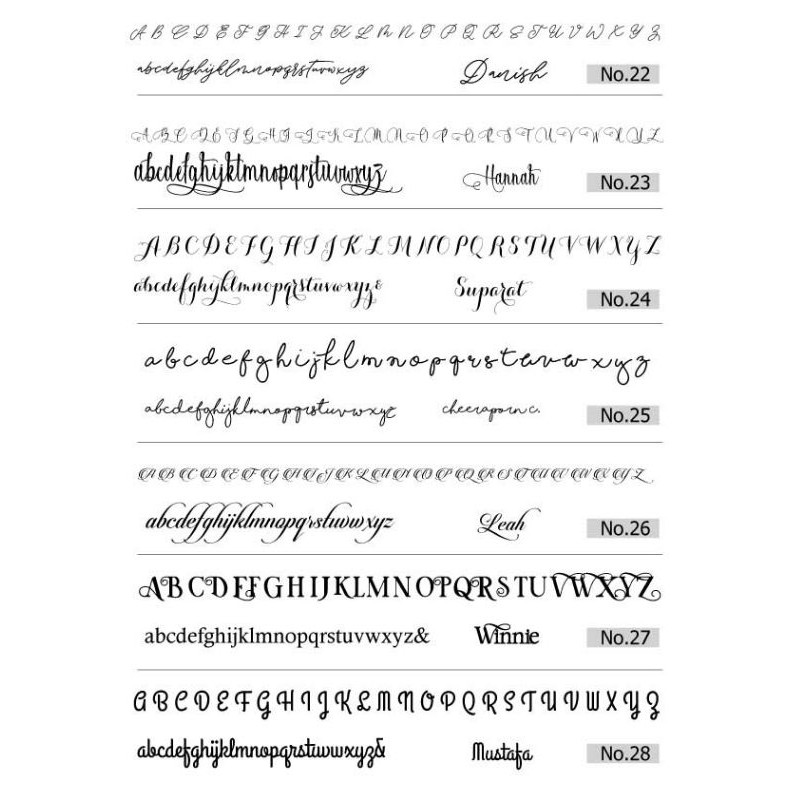 A B C D E F G H I J K L M N O P Q R S T U V W X Y Z
abcdefghijklmnopqrstuvwxyz Danish No.22
A B C D E F G H I J K L M N O P Q R S T U V W X Y Z
abcdefghijklmnopqrstuvwxyz Hannah No.23
A B C D E F G H I J K L M N O P Q R S T U V W X Y Z
abcdefghijklmnopqrstuvwxyz& Suparat No.24
a b c d e f g h i j k l m n o p q r s t u v w x y z
abcdefghijklmnopqrstuvwxyz cheeraporn c. No.25
A B C D E F G H I J K L M N O P Q R S T U V W X Y Z
abcdefghijklmnopqrstuvwxyz Leah No.26
A B C D E F G H I J K L M N O P Q R S T U V W X Y Z
abcdefghijklmnopqrstuvwxyz& Winnie No.27
A B C D E F G H I J K L M N O P Q R S T U V W X Y Z
abcdefghijklmnopqrstuvwxyz& Mustafa No.28